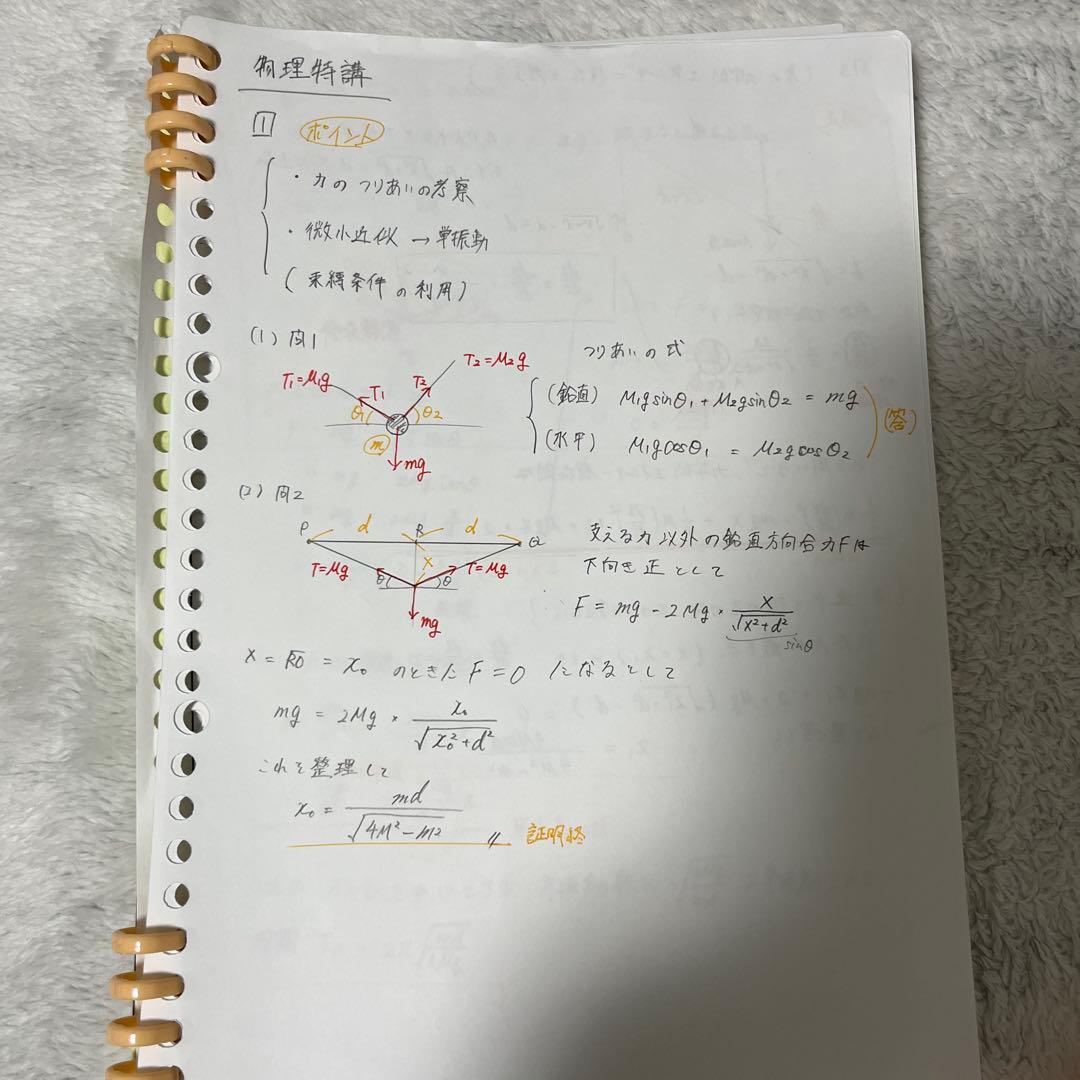 物理特講
1 ポイント
・力のつりあいの考察
・微小近似→単振動
(束縛条件の利用)
(1) 問1
つりあいの式
T₁=M₁g T₁ T₂ T₂=M₂g
θ₁ θ₂
m
mg
(鉛直) M₁gsinθ₁+M₂gsinθ₂ = mg
(水平) M₁gcosθ₁ = M₂gcosθ₂
(答)
(2) 問2
P d R d Q
x
T=Mg θ θ T=Mg
mg
支える力以外の鉛直方向合力Fは
下向き正として
F = mg - 2Mg × x/√(x²+d²)
sinθ
x = RO = x₀ のときに F=0 になるとして
mg = 2Mg × x₀/√(x₀²+d²)
これを整理して
x₀ = md/√(4M²-m²) 〃 証明終